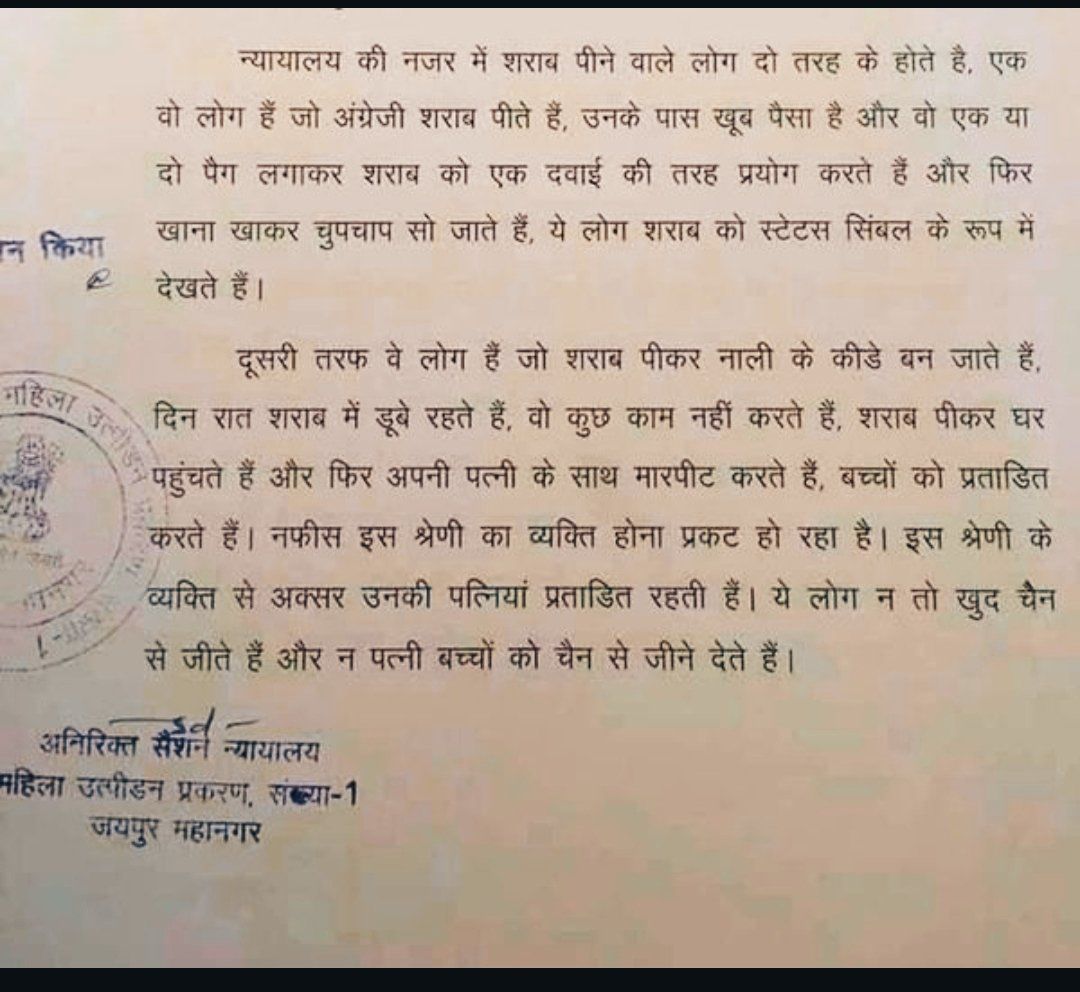 न्यायालय की नजर में शराब पीने वाले लोग दो तरह के होते है, एक
वो लोग हैं जो अंग्रेजी शराब पीते हैं, उनके पास खूब पैसा है और वो एक या
दो पैग लगाकर शराब को एक दवाई की तरह प्रयोग करते हैं और फिर
खाना खाकर चुपचाप सो जाते हैं, ये लोग शराब को स्टेटस सिंबल के रूप में
देखते हैं।
किया
दूसरी तरफ वे लोग हैं जो शराब पीकर नाली के कीडे बन जाते हैं,
दिन रात शराब में डूबे रहते हैं, वो कुछ काम नहीं करते हैं, शराब पीकर घर
पहुंचते हैं और फिर अपनी पत्नी के साथ मारपीट करते हैं, बच्चों को प्रताडित
करते हैं। नफीस इस श्रेणी का व्यक्ति होना प्रकट हो रहा है। इस श्रेणी के
व्यक्ति से अक्सर उनकी पत्नियां प्रताडित रहती हैं। ये लोग न तो खुद चैन
से जीते हैं और न पत्नी बच्चों को चैन से जीने देते हैं।
महिला उत्पीडन
sd
अनिरिक्त सैशन न्यायालय
महिला उत्पीडन प्रकरण, संख्या-1
जयपुर महानगर